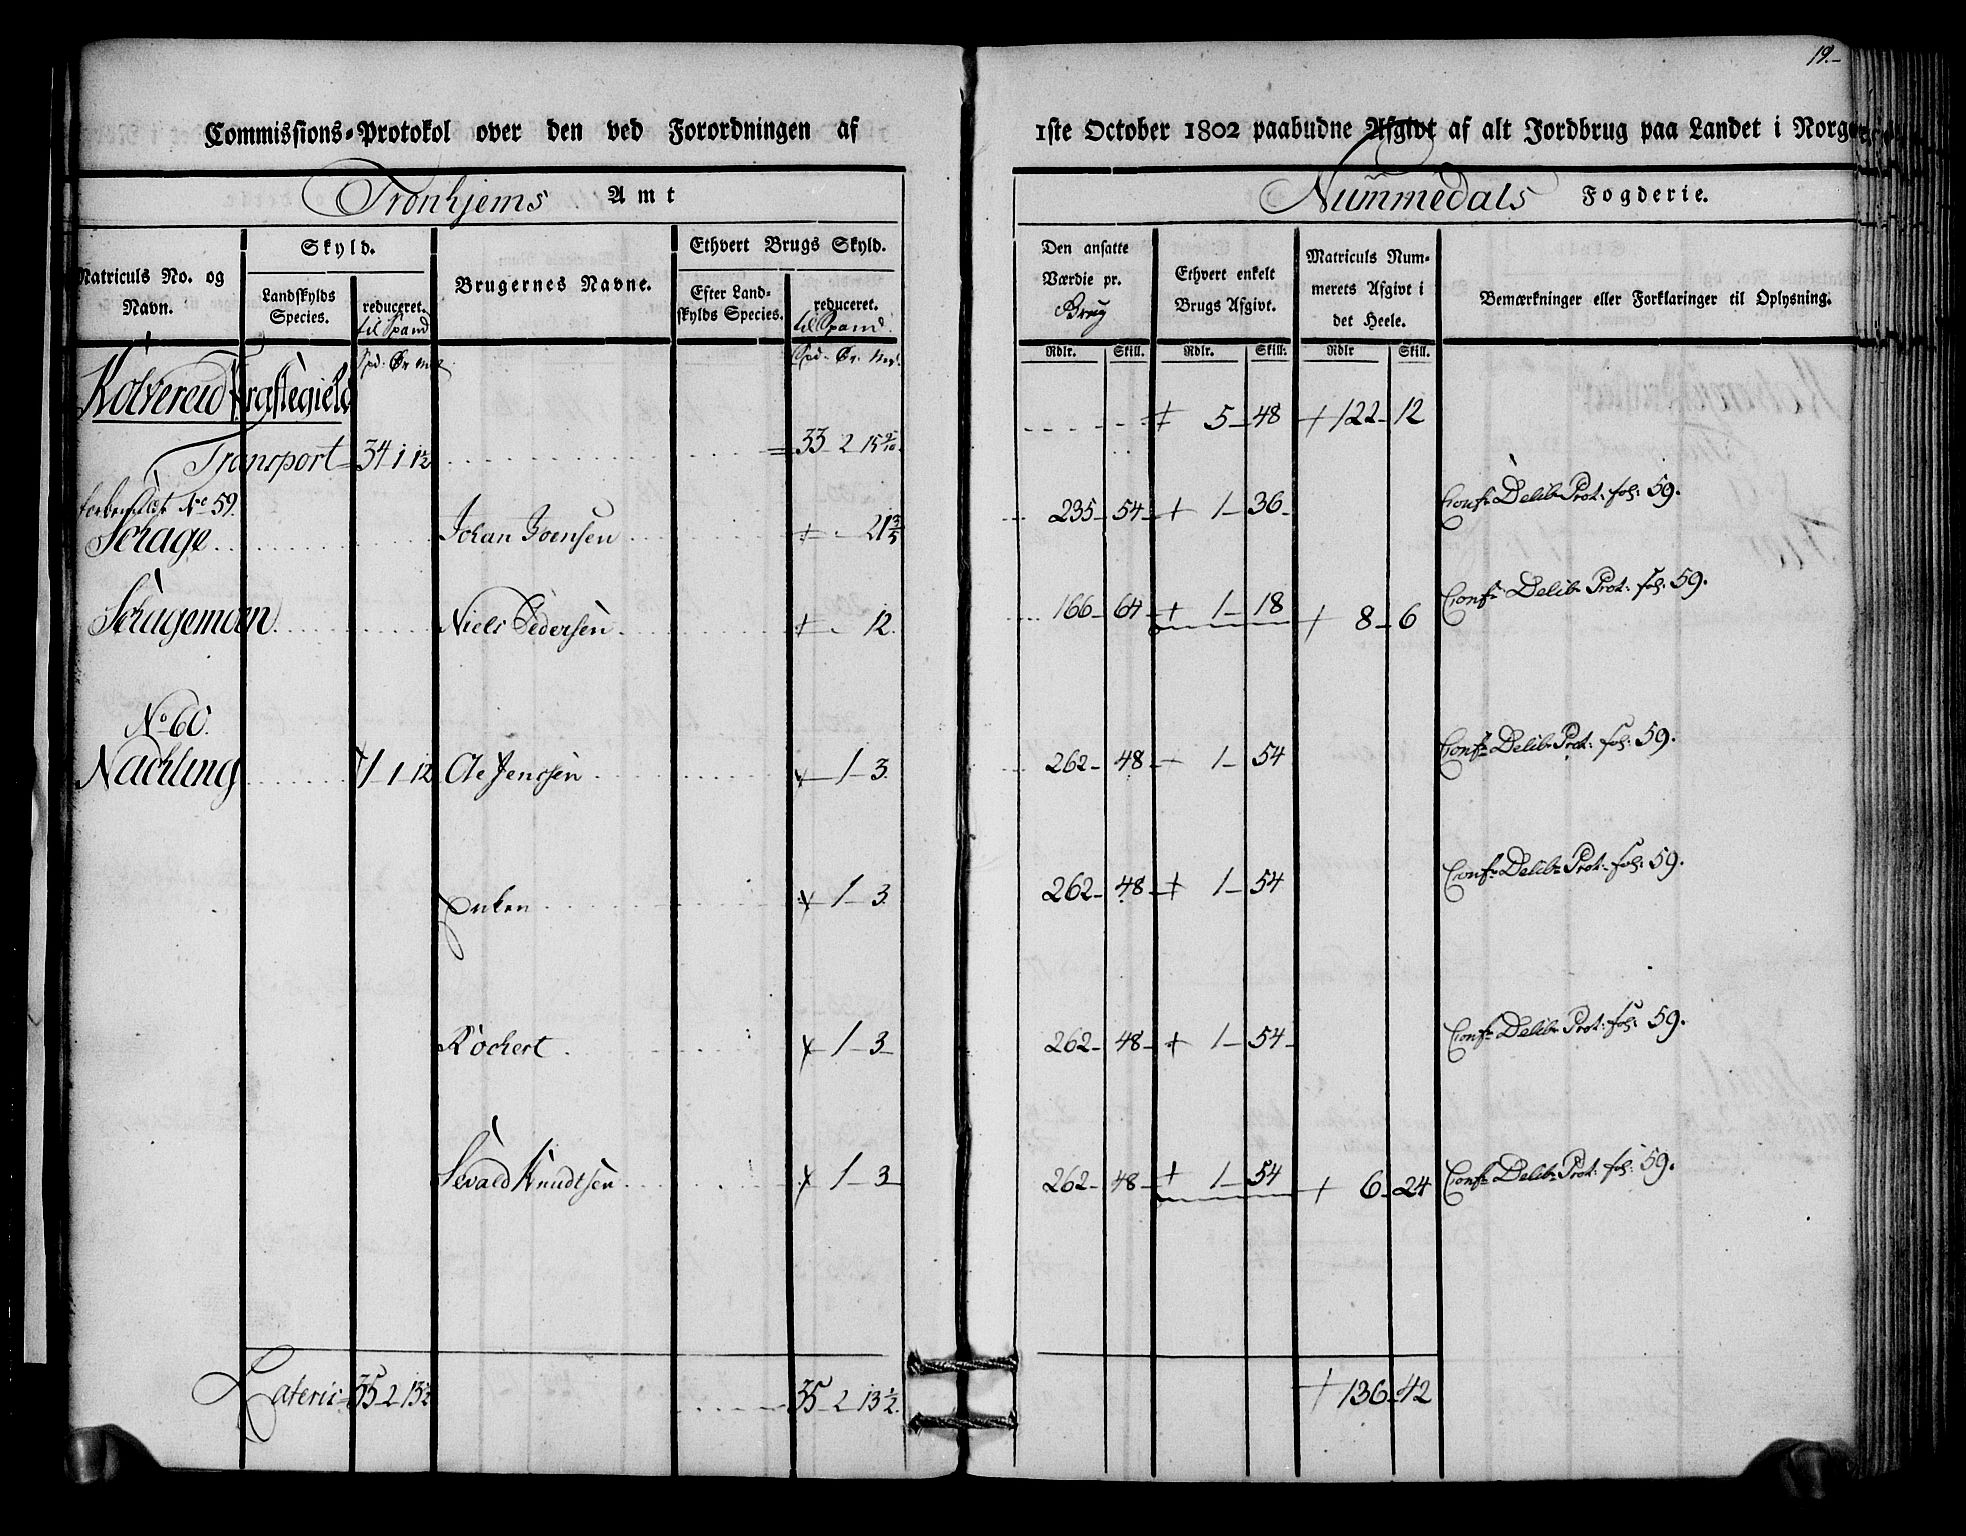 19.
Commissions-Protokol over den ved Forordningen af 1ste October 1802 paabudne Afgivt af alt Jordbrug paa Landet i Norge
Tronhjems Amt
Nummedals Fogderie.
Matriculs No. og Navn.
Skyld.
Landskylds Species.
reduceret. til Spand
Brugernes Navne.
Ethvert Brugs Skyld.
Efter Landskylds Species.
reduceret. til Spand.
Den ansatte Værdie pr. Brug
Ethvert enkelt Brugs Afgivt.
Matriculs Nummerets Afgivt i det Heele.
Bemærkninger eller Forklaringer til Oplysning.
Spd. Ør. Mk. Spd. Ør. Mk. Rdlr. Skill. Rdlr. Skill. Rdlr Skill.
Kolvereid Præstegield
5 48 122 12
Transport 34 1 1½ 33 2 15 9/10
No 59.
Schage Johan Ivensen 21 3/5 235 54 1 36 Confr Delib: Prot: fol: 59.
Schagemoen Niels Pedersen 12. 166 64 1 18 8 6 Confr Delib: Prot: fol: 59.
No 60.
Nachling 1 1 12 Ole Jenssen 1 3. 262 48 1 54 Confr Delib: Prot: fol: 59.
Enken 1 3. 262 48 1 54 Confr Delib: Prot: fol: 59.
Rochert 1 3 262 48 1 54 Confr Delib: Prot: fol: 59.
Sevald Knudtsen 1 3 262 48 1 54 6 24 Confr Delib: Prot: fol: 59.
Lateris 35 2 13½ 35 2 13½. 136 42